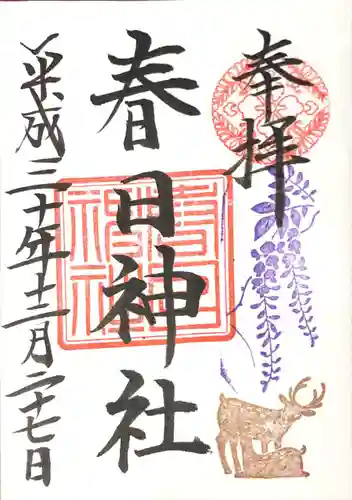 奉拝
春日神社
平成三十年十二月二十七日
春日
神社